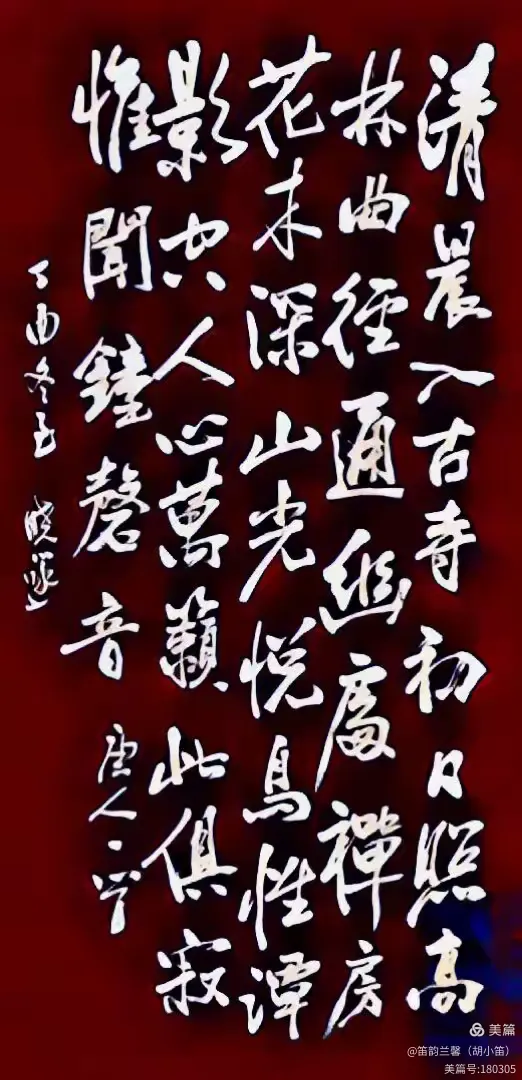 清晨入古寺初日照高
林曲徑通幽處禪房
花木深山光悅鳥性潭
影空人心萬籟此俱寂
惟聞鐘磬音唐人
丁酉冬
美篇
@笛韵兰馨（胡小笛）
美篇号:180305